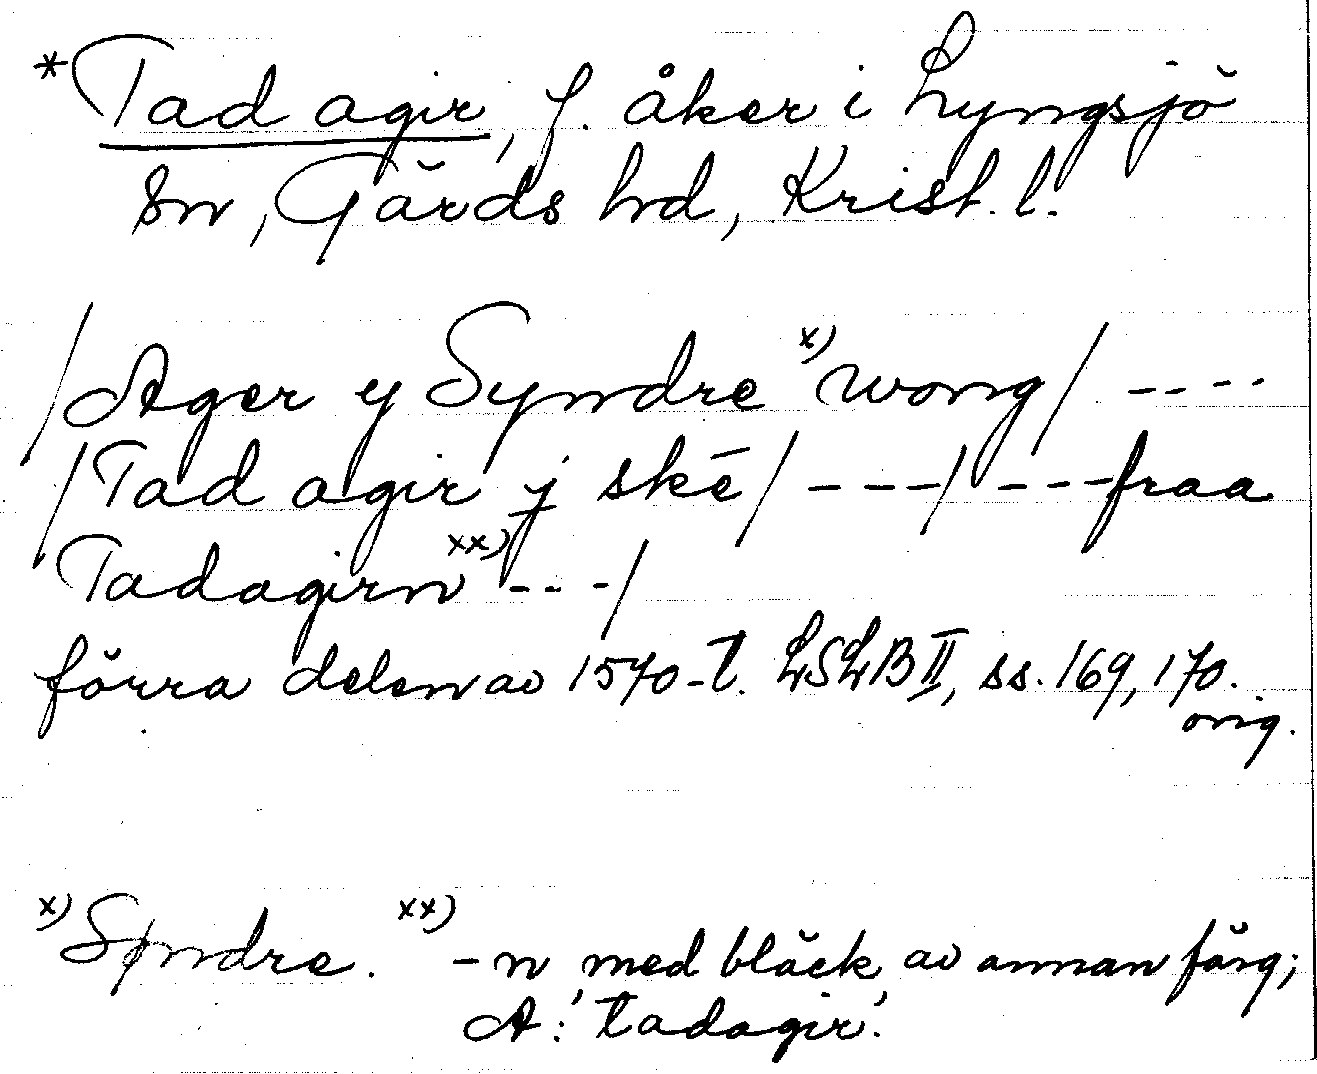 *Tad agir, f. åker i Lyngsjö
sn, Gärds hd, Krist. l.
/Ager y Syndre x) wong/ ----
/Tad agir j skē/ ---/ ---fraa
Tadagirn xx) ---/
förra delen av 1570-t. LSLB II, ss. 169, 170.
orig.
x) Syndre. xx) -n med bläck av annan färg;
A: 'tadagir'.